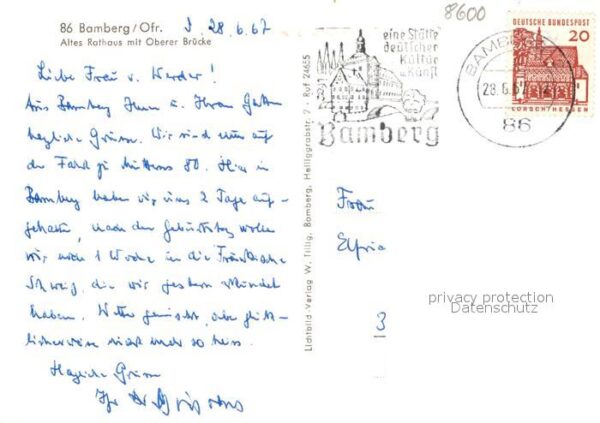 86 Bamberg/Ofr. D, 28.6.67
Altes Rathaus mit Oberer Brücke
Liebe Frau v. Werder!
Aus Bamberg Ihnen u. Ihrem Gatten
herzliche Grüsse. Wir sind nun auf
der Fahrt zu Mutters 80. Hier in
Bamberg haben wir uns 2 Tage auf-
gehalten, nach dem Geburtstag wollen
wir noch 1 Woche in die Fränkische
Schweiz, die wir gestern
haben. Wetter gemischt, aber glück-
licherweise nicht mehr so heiss.
Herzliche Grüsse
Ihr
Lichtbild-Verlag W. Tillig, Bamberg, Heiliggrabstr. 7 - Ruf 24655
eine Stätte
deutscher
Kultur
u. Kunst
Bamberg
8600
DEUTSCHE BUNDESPOST
20
LORSCH/HESSEN
BAMBERG
28.6.67
86
Frau
Elfria
3
privacy protection
Datenschutz